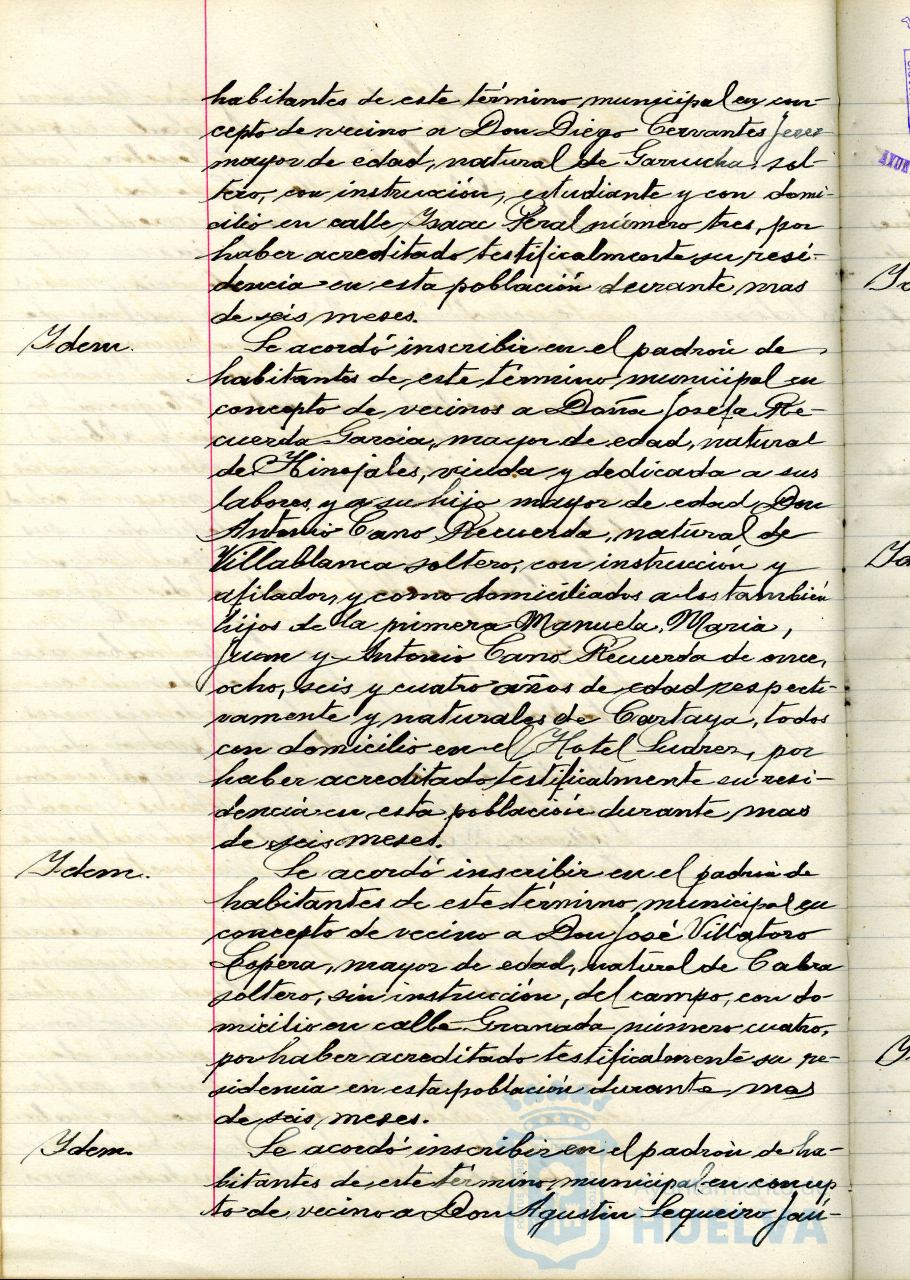 habitantes de este término municipal en con-
cepto de vecino a Don Diego Cervantes Jerez
mayor de edad, natural de Garrucha, sol-
tero, con instrucción, estudiante y con domi-
cilio en calle Isaac Peral número tres, por
haber acreditado testificalmente su resi-
dencia en esta población durante mas
de seis meses.
Ydem.
Se acordó inscribir en el padrón de
habitantes de este término municipal en
concepto de vecinos a Doña Josefa Re-
cuerda Garcia, mayor de edad, natural
de Hinojales, viuda y dedicada a sus
labores y a su hijo mayor de edad Don
Antonio Cano Recuerda, natural de
Villablanca soltero, con instrucción y
afilador, y como domiciliados a los también
hijos de la primera Manuela, Maria,
Juan y Antonio Cano Recuerda de once,
ocho, seis y cuatro años de edad respecti-
vamente y naturales de Cartaya, todos
con domicilio en el Hotel Suarez, por
haber acreditado testificalmente su resi-
dencia en esta población durante mas
de seis meses.
Ydem.
Se acordó inscribir en el padrón de
habitantes de este término municipal en
concepto de vecino a Don José Villatoro
Espera, mayor de edad, natural de Cabra
soltero, sin instrucción, del campo, con do-
micilio en calle Granada número cuatro,
por haber acreditado testificalmente su re-
sidencia en esta población durante mas
de seis meses.
Ydem.
Se acordó inscribir en el padrón de ha-
bitantes de este término municipal en concep
to de vecino a Don Agustin Sequeiro Jau-
Ayuntamiento de
HUELVA